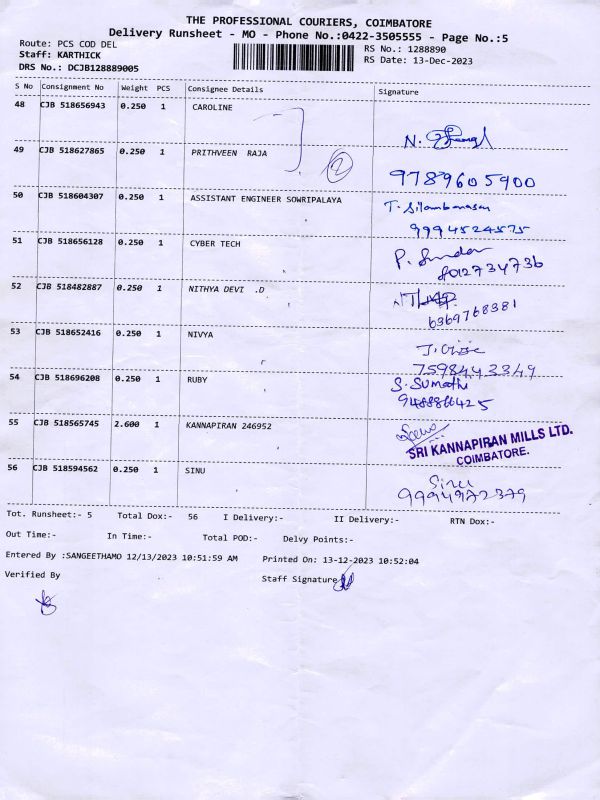 THE PROFESSIONAL COURIERS, COIMBATORE
Delivery Runsheet - MO - Phone No.:0422-3505555 - Page No.:5
Route: PCS COD DEL RS No.: 1288890
Staff: KARTHICK RS Date: 13-Dec-2023
DRS No.: DCJB128889005
S No Consignment No Weight PCS Consignee Details Signature
48 CJB 518656943 0.250 1 CAROLINE
N.
49 CJB 518627865 0.250 1 PRITHVEEN RAJA
2
9789605900
50 CJB 518604307 0.250 1 ASSISTANT ENGINEER SOWRIPALAYA T. Silambarasan
9994524575
51 CJB 518656128 0.250 1 CYBER TECH P. Sundar
8012734736
52 CJB 518482887 0.250 1 NITHYA DEVI .D
6369768381
53 CJB 518652416 0.250 1 NIVYA
7598443349
54 CJB 518696208 0.250 1 RUBY S. Sumathi
55 CJB 518565745 2.600 1 KANNAPIRAN 246952
SRI KANNAPIRAN MILLS LTD.
COIMBATORE.
56 CJB 518594562 0.250 1 SINU Sinu
9994972379
Tot. Runsheet:- 5 Total Dox:- 56 I Delivery:- II Delivery:- RTN Dox:-
Out Time:- In Time:- Total POD:- Delvy Points:-
Entered By :SANGEETHAMO 12/13/2023 10:51:59 AM Printed On: 13-12-2023 10:52:04
Verified By Staff Signature